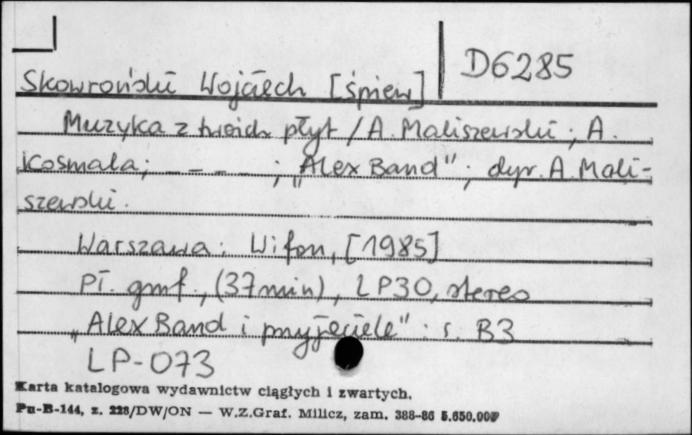 D6285
Skowroński Wojciech [śpiew]
Muzyka z twoich płyt / A. Maliszewski ; A.
Kosmala ; _ _ _ _ ; „Alex Band" ; dyr. A. Mali-
szewski.
Warszawa : Wifon, [1985]
Pł. gmf., (37 min), LP30, stereo
„Alex Band i przyjaciele" : s. B3
LP-073
Karta katalogowa wydawnictw ciągłych i zwartych.
Pu-B-144, z. 228/DW/ON — W.Z.Graf. Milicz, zam. 388-86 5.650.000